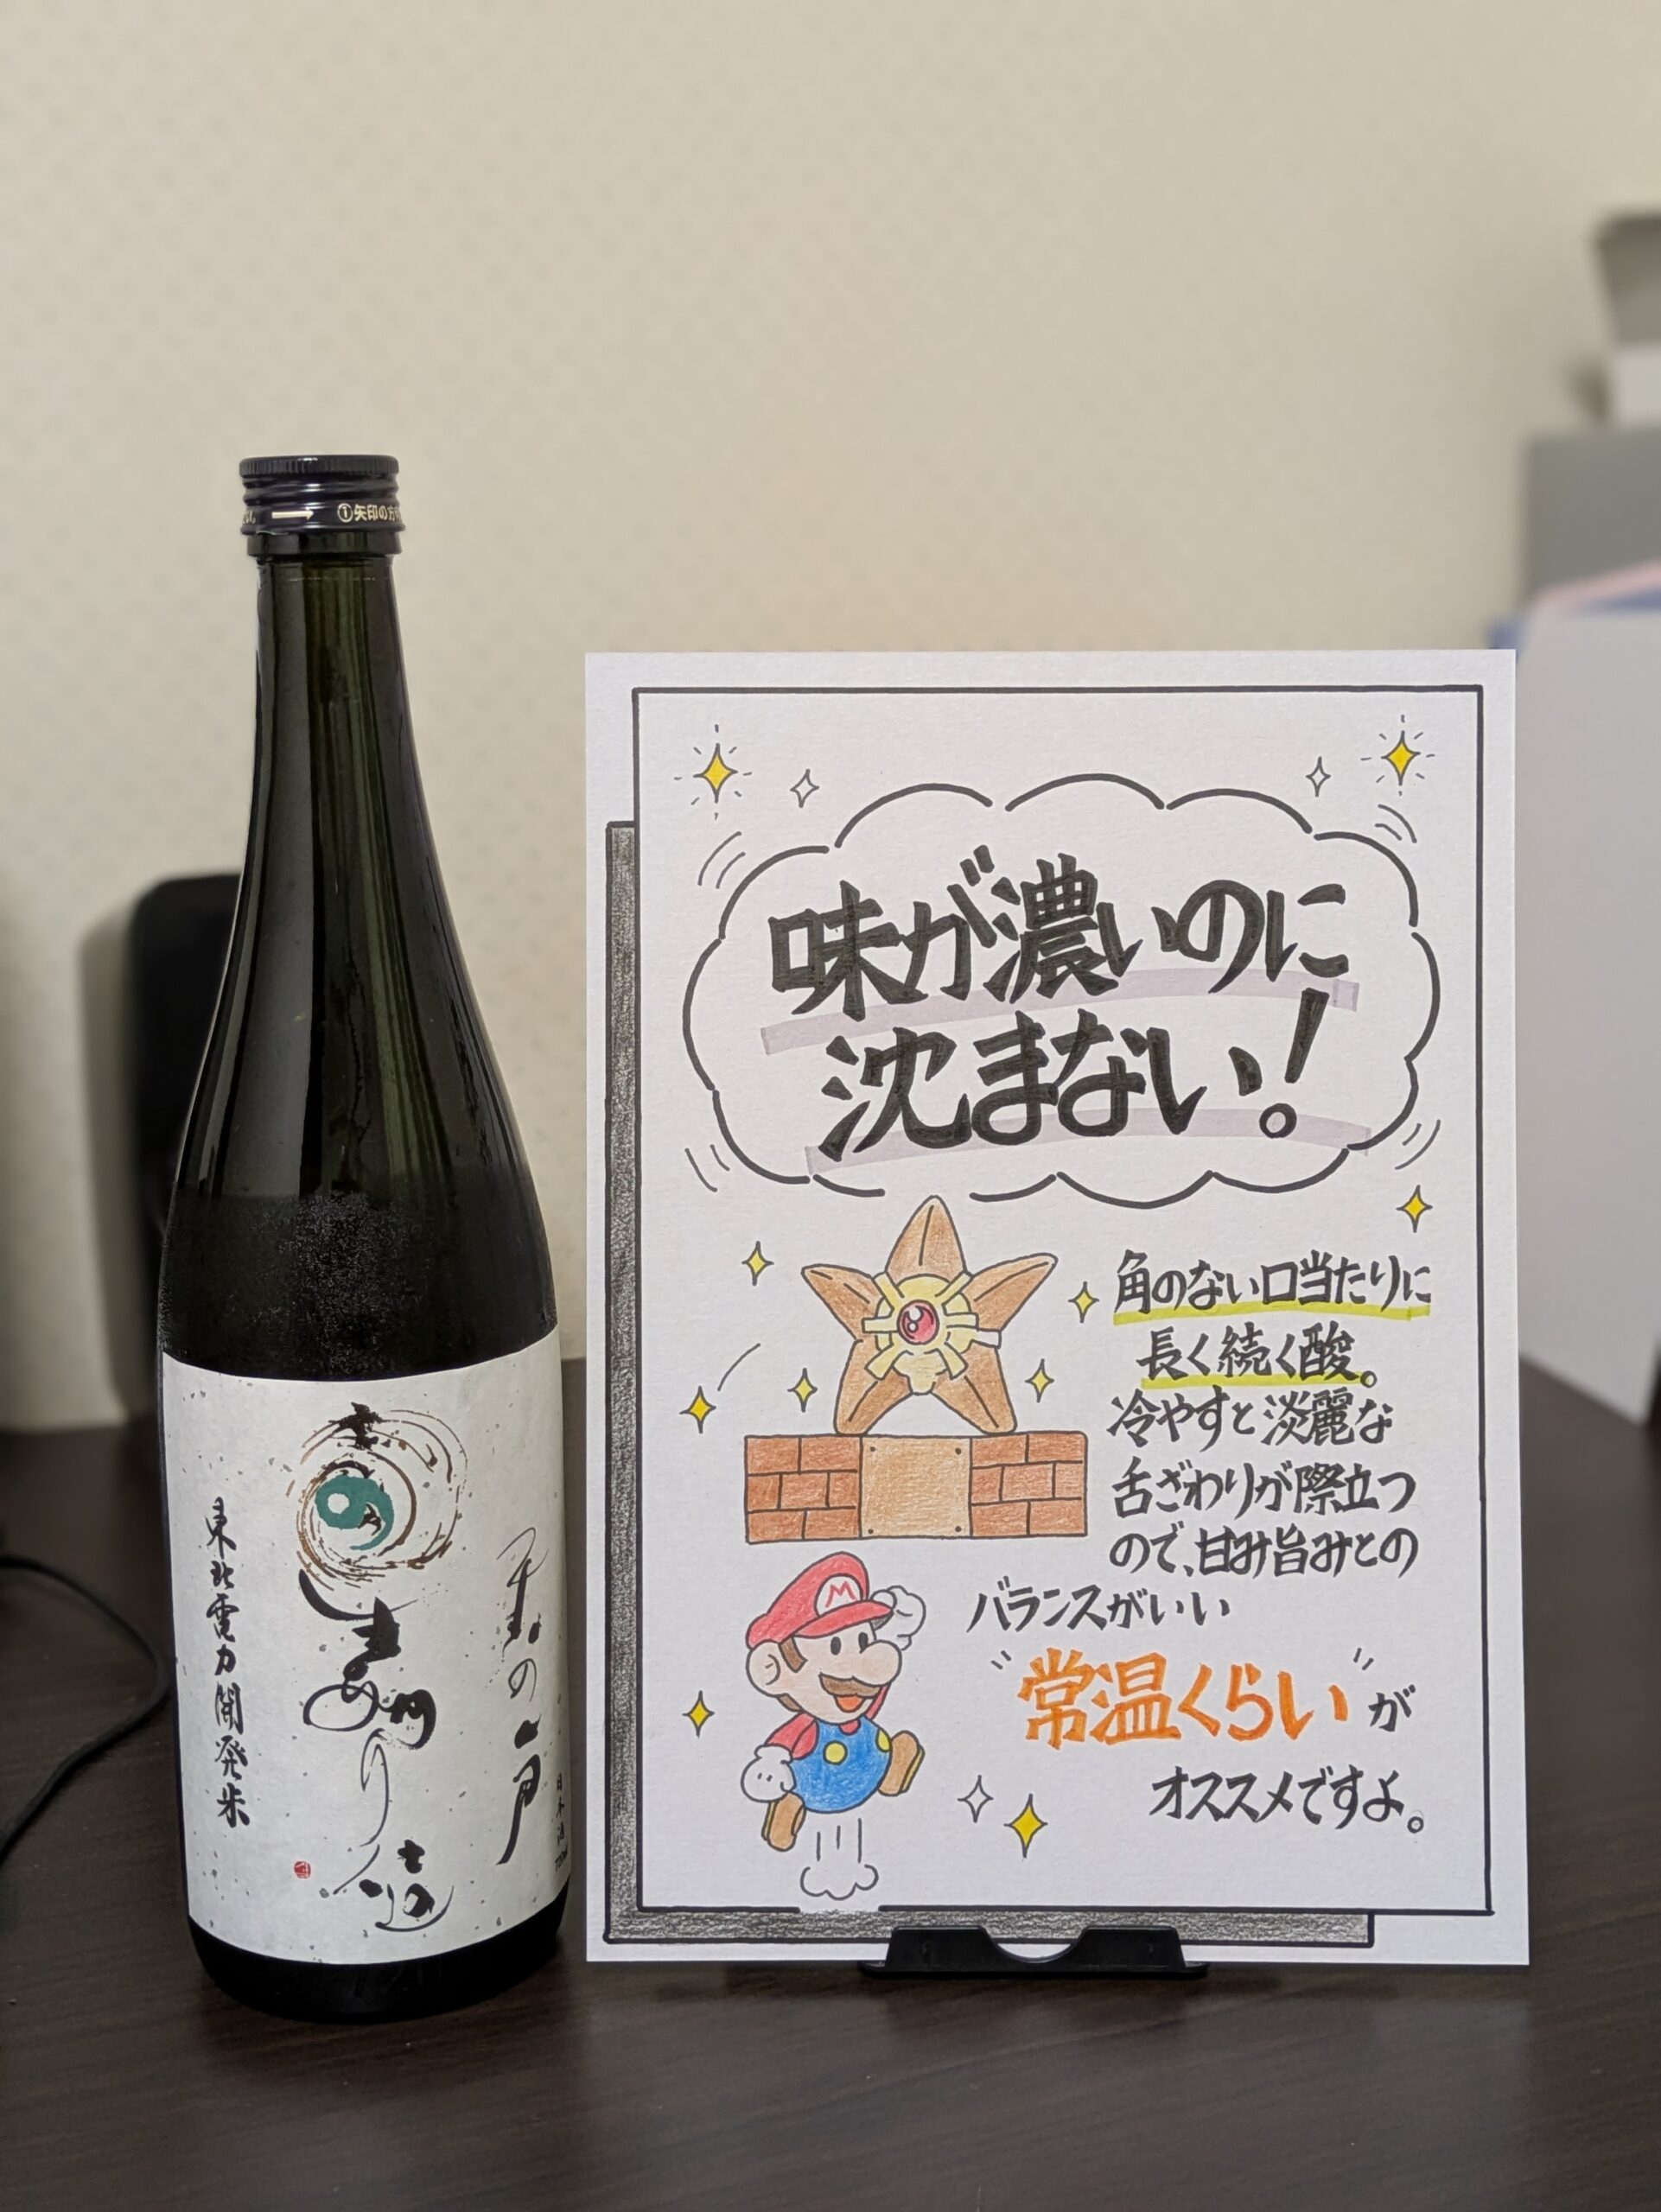 ①矢印の方
東北電力開発米
天の戸
日本酒
720ml
味が濃いのに
沈まない!
角のない口当たりに
長く続く酸。
冷やすと淡麗な
舌ざわりが際立つ
ので、甘み旨みとの
バランスがいい
"常温くらい"が
オススメですよ。
M